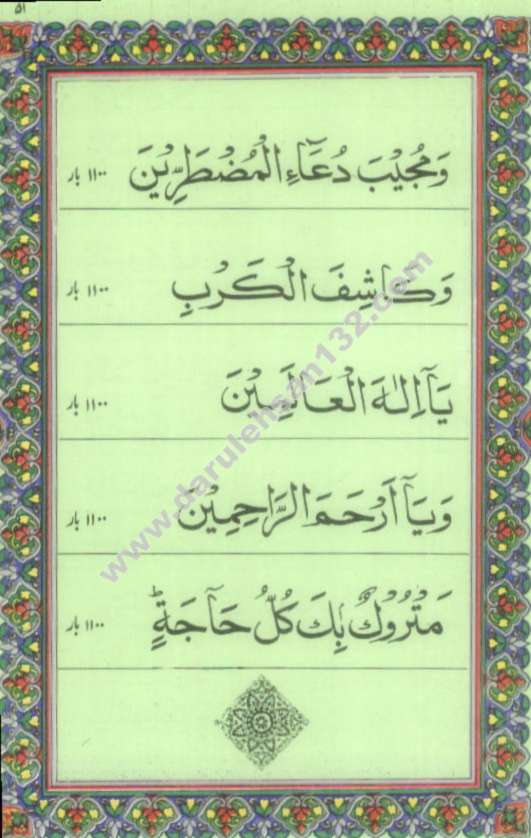 ۵۱
وَمُجِيْبَ دُعَآءِ الْمُضْطَرِّيْنَ ۱۱۰۰ بار
وَكَاشِفَ الْكَرْبِ ۱۱۰۰ بار
يَآ اِلٰهَ الْعَالَمِيْنَ ۱۱۰۰ بار
وَيَآ اَرْحَمَ الرَّاحِمِيْنَ ۱۱۰۰ بار
مَتْرُوْكٌ بِكَ كُلُّ حَاجَةٍ ۱۱۰۰ بار
www.darulehsan132.com